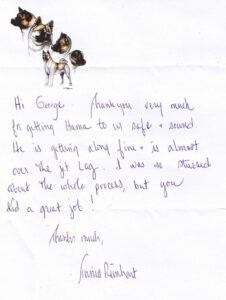 Hi George. Thankyou very much
for getting Hama to us safe + sound.
He is getting along fine + is almost
over the jet Lag. I was so stressed
about the whole process, but you
did a great job!
Thanks much,
Reinhart